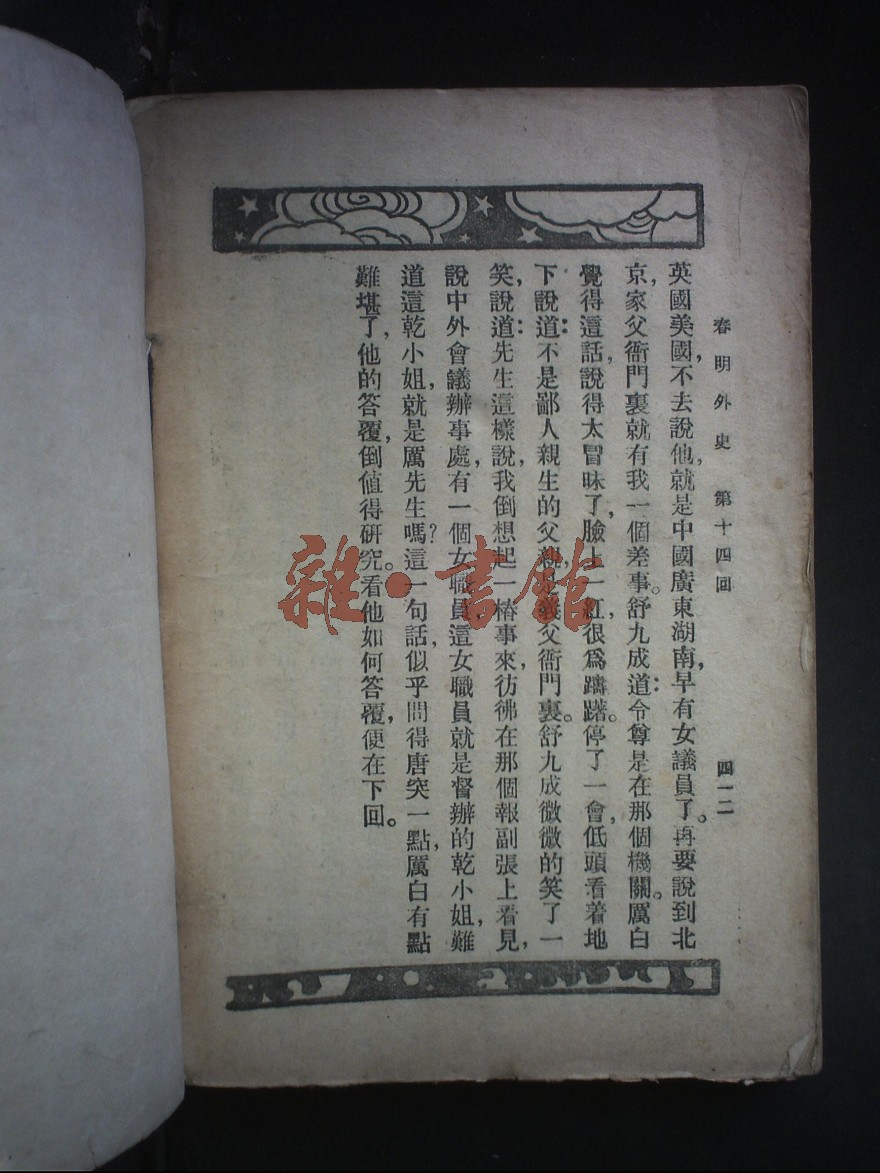 春明外史　第十四回　四一二
英國美國，不去說他，就是中國廣東湖南，早有女議員了。再要說到北
京，家父衙門裏就有我一個差事。舒九成道：令尊是在那個機關。厲白
覺得這話，說得太冒昧了，臉上一紅，很爲躊躇。停了一會，低頭看着地
下說道：不是鄙人親生的父親，是義父衙門裏。舒九成微微的笑了一
笑，說道：先生這樣說，我倒想起一樁事來，彷彿在那個報副張上看見，
說中外會議辦事處，有一個女職員這女職員就是督辦的乾小姐，難
道這乾小姐，就是厲先生嗎？這一句話，似乎問得唐突一點，厲白有點
難堪了，他的答覆，倒值得研究。看他如何答覆，便在下回。
雜·書館